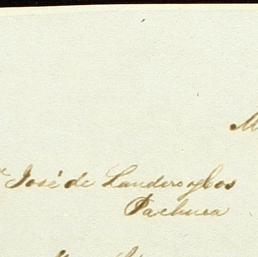 M
José de Landero y Cos
Pachuca